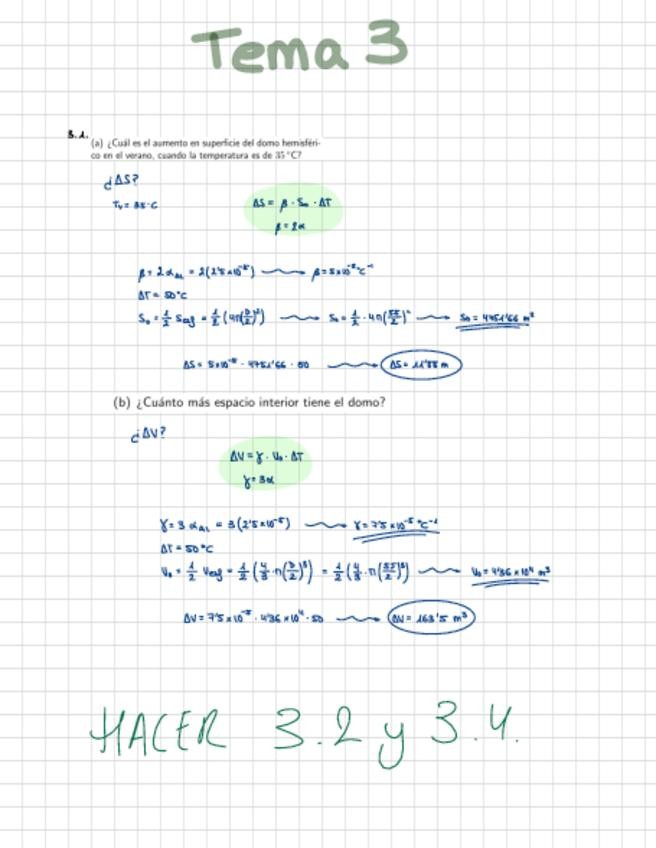 Tema 3
3.1.
(a) ¿Cuál es el aumento en superficie del domo hemisféri-
co en el verano, cuando la temperatura es de 35 °C?
¿ΔS?
Tv = 35°C
ΔS = β · S₀ · ΔT
β = 2α
β = 2 α_AL = 2(2'5x10⁻⁵) → β = 5x10⁻⁵ °C⁻¹
ΔT = 50°C
S₀ = 1/2 S_esf = 1/2 (4π(D/2)²) → S₀ = 1/2 · 4π(55/2)² → S₀ = 4751'66 m²
ΔS = 5x10⁻⁵ · 4751'66 · 50 → ΔS = 11'88 m
(b) ¿Cuánto más espacio interior tiene el domo?
¿ΔV?
ΔV = γ · V₀ · ΔT
γ = 3α
γ = 3 α_AL = 3(2'5x10⁻⁵) → γ = 7'5x10⁻⁵ °C⁻¹
ΔT = 50°C
V₀ = 1/2 V_esf = 1/2 (4/3 · π(D/2)³) = 1/2 (4/3 · π(55/2)³) → V₀ = 4'36 x 10⁴ m³
ΔV = 7'5x10⁻⁵ · 4'36x10⁴ · 50 → ΔV = 163'5 m³
HACER 3.2 y 3.4.